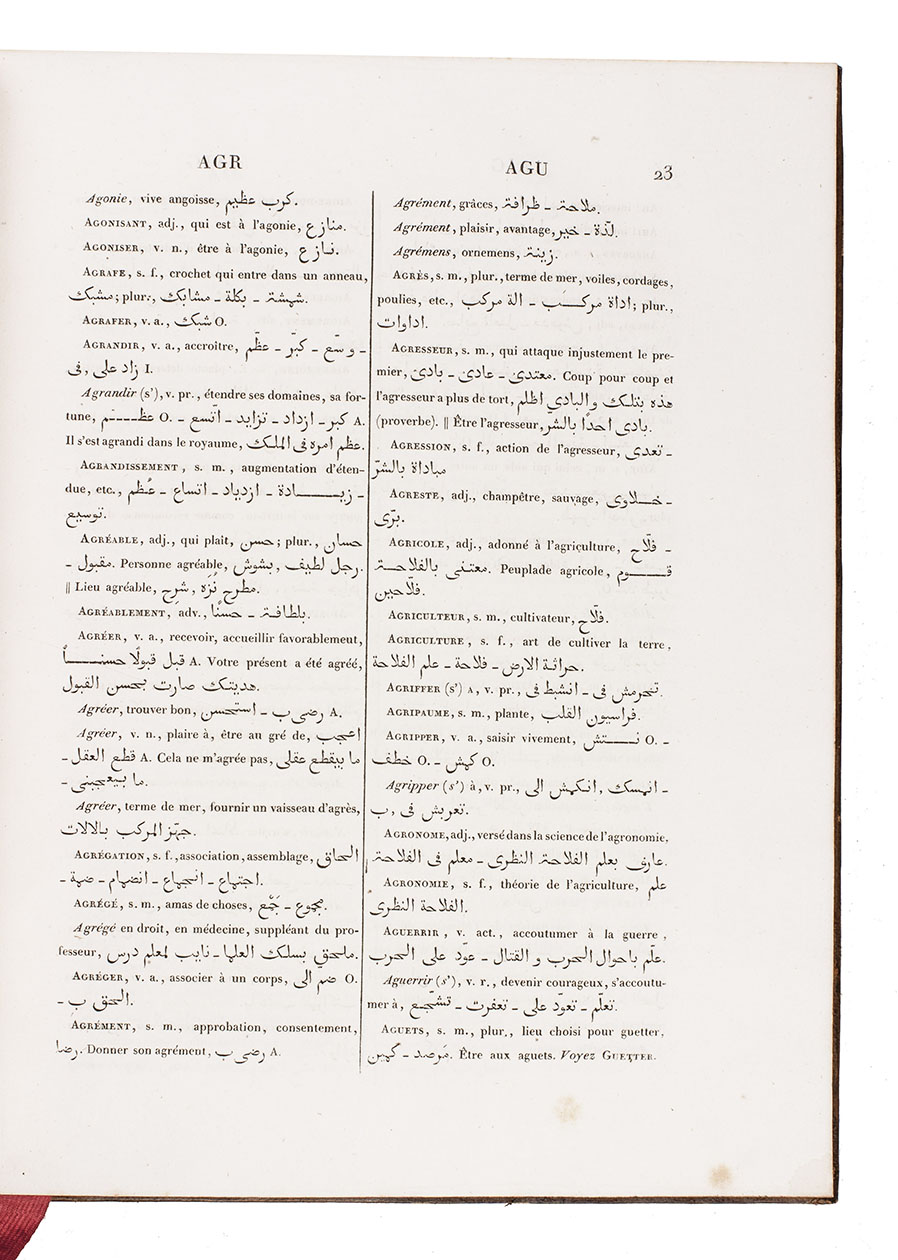 AGR
Agonie, vive angoisse, كرب عظيم.
AGONISANT, adj., qui est à l'agonie, منازع.
AGONISER, v. n., être à l'agonie, نازع.
AGRAFE, s. f., crochet qui entre dans un anneau,
شهشة - بكلة - مشابك ;plur., مشبك.
AGRAFER, v. a., شبك O.
AGRANDIR, v. a., accroitre, وسّع - كبّر - عظّم -
زاد على, فى I.
Agrandir (s'), v. pr., étendre ses domaines, sa for-
tune, عظـــم O. - كبر - ازداد - تزايد - اتسع A.
Il s'est agrandi dans le royaume, عظم امره فى الملك.
AGRANDISSEMENT, s. m., augmentation d'éten-
due, etc., زيـــادة - ازدياد - اتساع - عُظم -
توسيع.
AGRÉABLE, adj., qui plait, حسن; plur., حسان
- مقبول. Personne agréable, رجل لطيف, بشوش.
|| Lieu agréable, مطرح نزه, شرح.
AGRÉABLEMENT, adv., بلطافة - حسنًا.
AGRÉER, v. a., recevoir, accueillir favorablement,
قبل قبولًا حسنـــاً A. Votre présent a été agréé,
هديتك صارت بحسن القبول.
Agréer, trouver bon, رضى ب - استحسن A.
Agréer, v. n., plaire à, être au gré de, اعجب
- قطع العقل A. Cela ne m'agrée pas, ما بيقطع عقلى
- ما بيعجبنى.
Agréer, terme de mer, fournir un vaisseau d'agrès,
جهّز المركب بالالات.
AGRÉGATION, s. f., association, assemblage, الحاق
- اجتماع - انجماع - انضمام - ضمة.
AGRÉGÉ, s. m., amas de choses, مجموع - جَمْع.
Agrégé en droit, en médecine, suppléant du pro-
fesseur, ملحق بسلك العلما - نايب لمعلم درس.
AGRÉGER, v. a., associer à un corps, ضم الى O.
- الحق ب.
AGRÉMENT, s. m., approbation, consentement,
رضا. Donner son agrément, رضى ب A.
AGU
23
Agrément, grâces, ملاحة - ظرافة.
Agrément, plaisir, avantage, لذّة - خير.
Agrémens, ornemens, زينة.
AGRÈS, s. m., plur., terme de mer, voiles, cordages,
poulies, etc., اداة مركـب - الة مركب; plur.,
اداوات.
AGRESSEUR, s. m., qui attaque injustement le pre-
mier, معتدى - عادى - بادى. Coup pour coup et
l'agresseur a plus de tort, هذه بتلك والبادي اظلم
(proverbe). || Être l'agresseur, بادى احدًا بالشر.
AGRESSION, s. f., action de l'agresseur, تعدى -
مباداة بالشرّ
AGRESTE, adj., champêtre, sauvage, خـلاوى -
برّى.
AGRICOLE, adj., adonné à l'agriculture, فلّاح -
معتنى بالفلاحة. Peuplade agricole, قـــوم
فلّاحين.
AGRICULTEUR, s. m., cultivateur, فلّاح.
AGRICULTURE, s. f., art de cultiver la terre,
حراثة الارض - فلاحة - علم الفلاحة.
AGRIFFER (s') A, v. pr., تخرمش فى - انشبط فى.
AGRIPAUME, s. m., plante, فراسيون القلب.
AGRIPPER, v. a., saisir vivement, نـــتش O. -
خطف O. - كهش O.
Agripper (s') à, v. pr., انمسك, انكمش الى -
تعربش فى, ب.
AGRONOME, adj., versé dans la science de l'agronomie,
عارف بعلم الفلاحة النظرى - معلم فى الفلاحة.
AGRONOMIE, s. f., théorie de l'agriculture, علم
الفلاحة النظرى.
AGUERRIR, v. act., accoutumer à la guerre,
علّم باحوال الحرب و القتال - عوّد على الحرب.
Aguerrir (s'), v. r., devenir courageux, s'accoutu-
mer à, تعلّم - تعوّد على - تعفرت - تشجّع.
AGUETS, s. m., plur., lieu choisi pour guetter,
مَرصد - كمين. Être aux aguets. Voyez GUETTER.